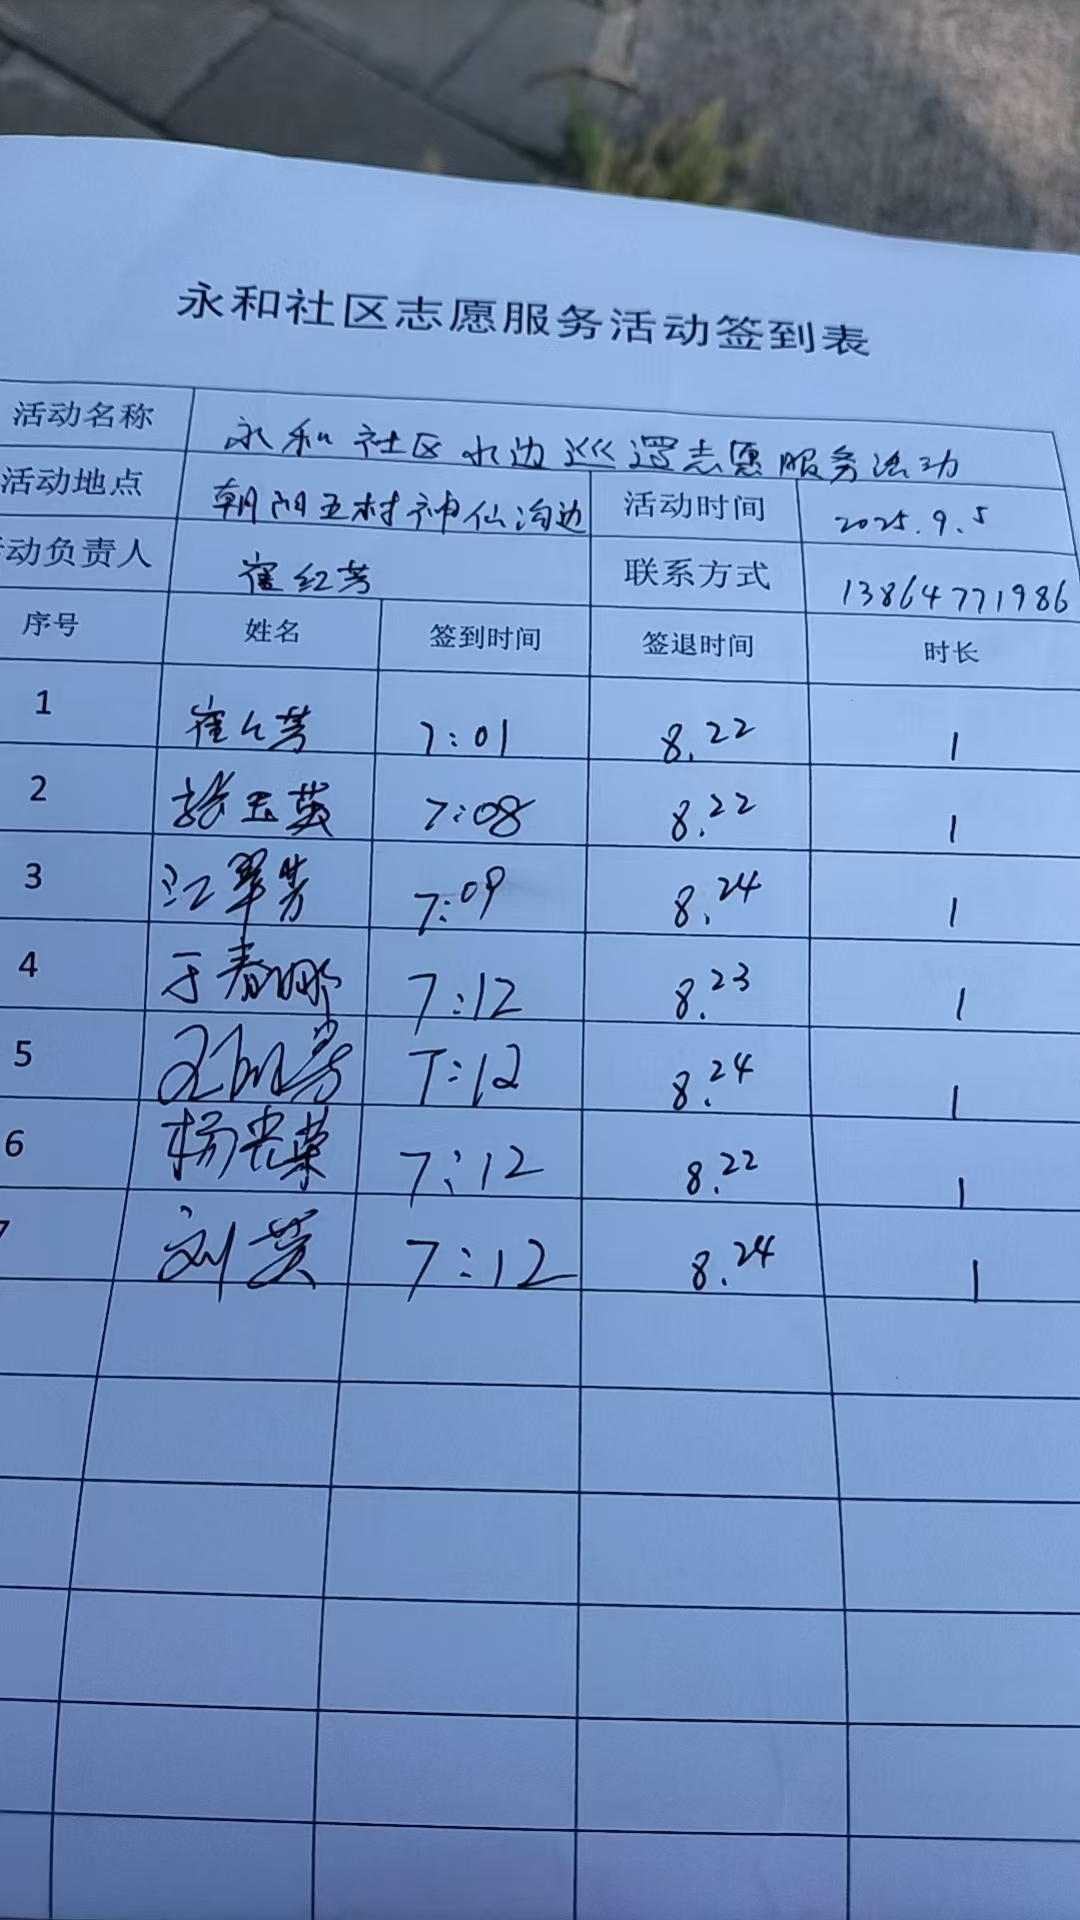 永和社区志愿服务活动签到表
活动名称 永和社区水边巡逻志愿服务活动
活动地点 朝阳五村神仙沟边 活动时间 2025.9.5
动负责人 崔红芳 联系方式 13864771986
序号 姓名 签到时间 签退时间 时长
1 崔红芳 7:01 8.22 1
2 张玉英 7:08 8.22 1
3 江翠芳 7:09 8.24 1
4 于春娜 7:12 8.23 1
5 7:12 8.24 1
6 杨光荣 7:12 8.22 1
7 刘英 7:12 8.24 1